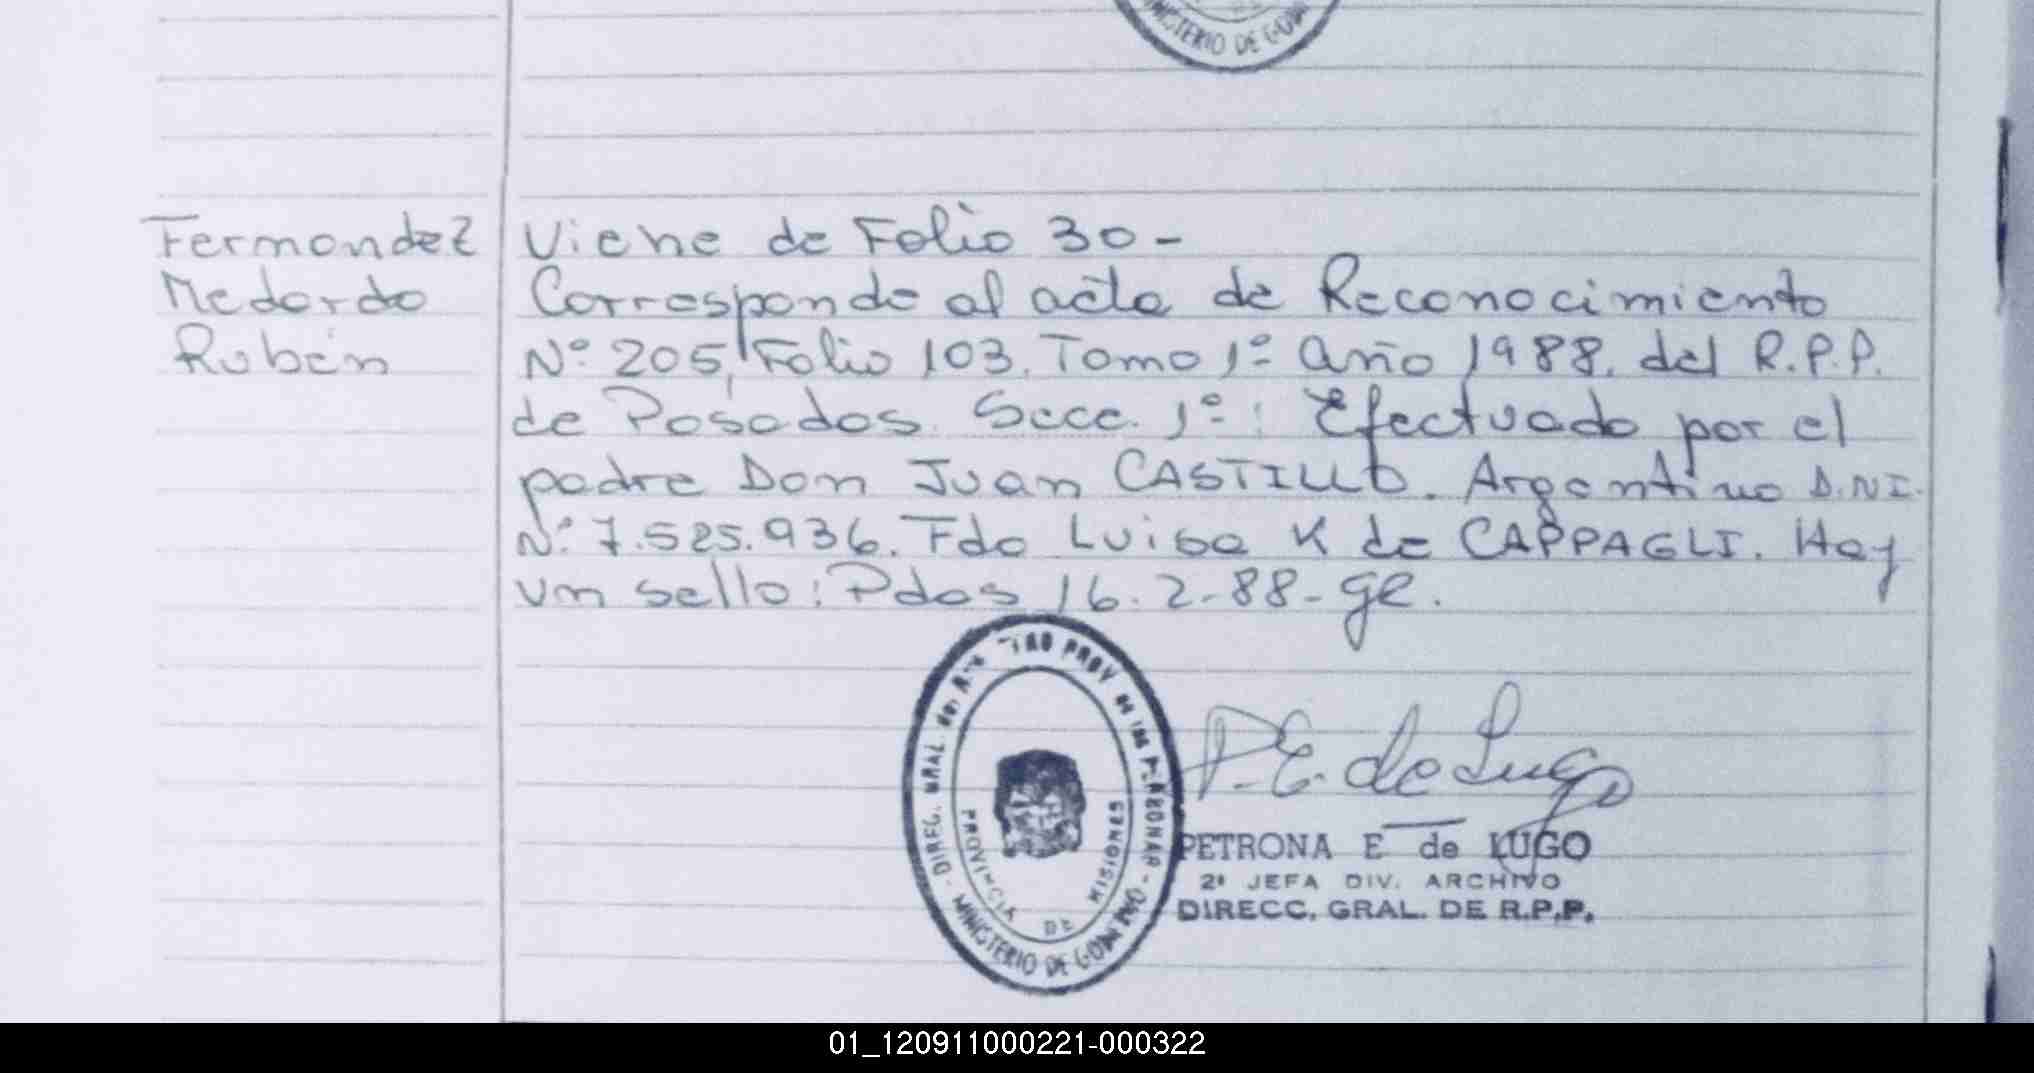 MINISTERIO DE GOB
Fernandez
Medardo
Rubén
Viene de Folio 30-
Corresponde al acta de Reconocimiento
Nº 205, Folio 103. Tomo 1º Año 1988. del R.P.P.
de Posadas. Secc. 1º: Efectuado por el
padre Don Juan CASTILLO. Argentino D.N.I.
Nº 7.525.936. Fdo Luisa K de CAPPAGLI. Hay
un sello: Pdas 16.2-88-ge.
DIREC. GRAL. del PROV de las PERSONAS
MINISTERIO DE GOBIERNO
PROVINCIA DE MISIONES
P.E. de Lugo
PETRONA E de LUGO
2ª JEFA DIV. ARCHIVO
DIRECC. GRAL. DE R.P.P.
01_120911000221-000322